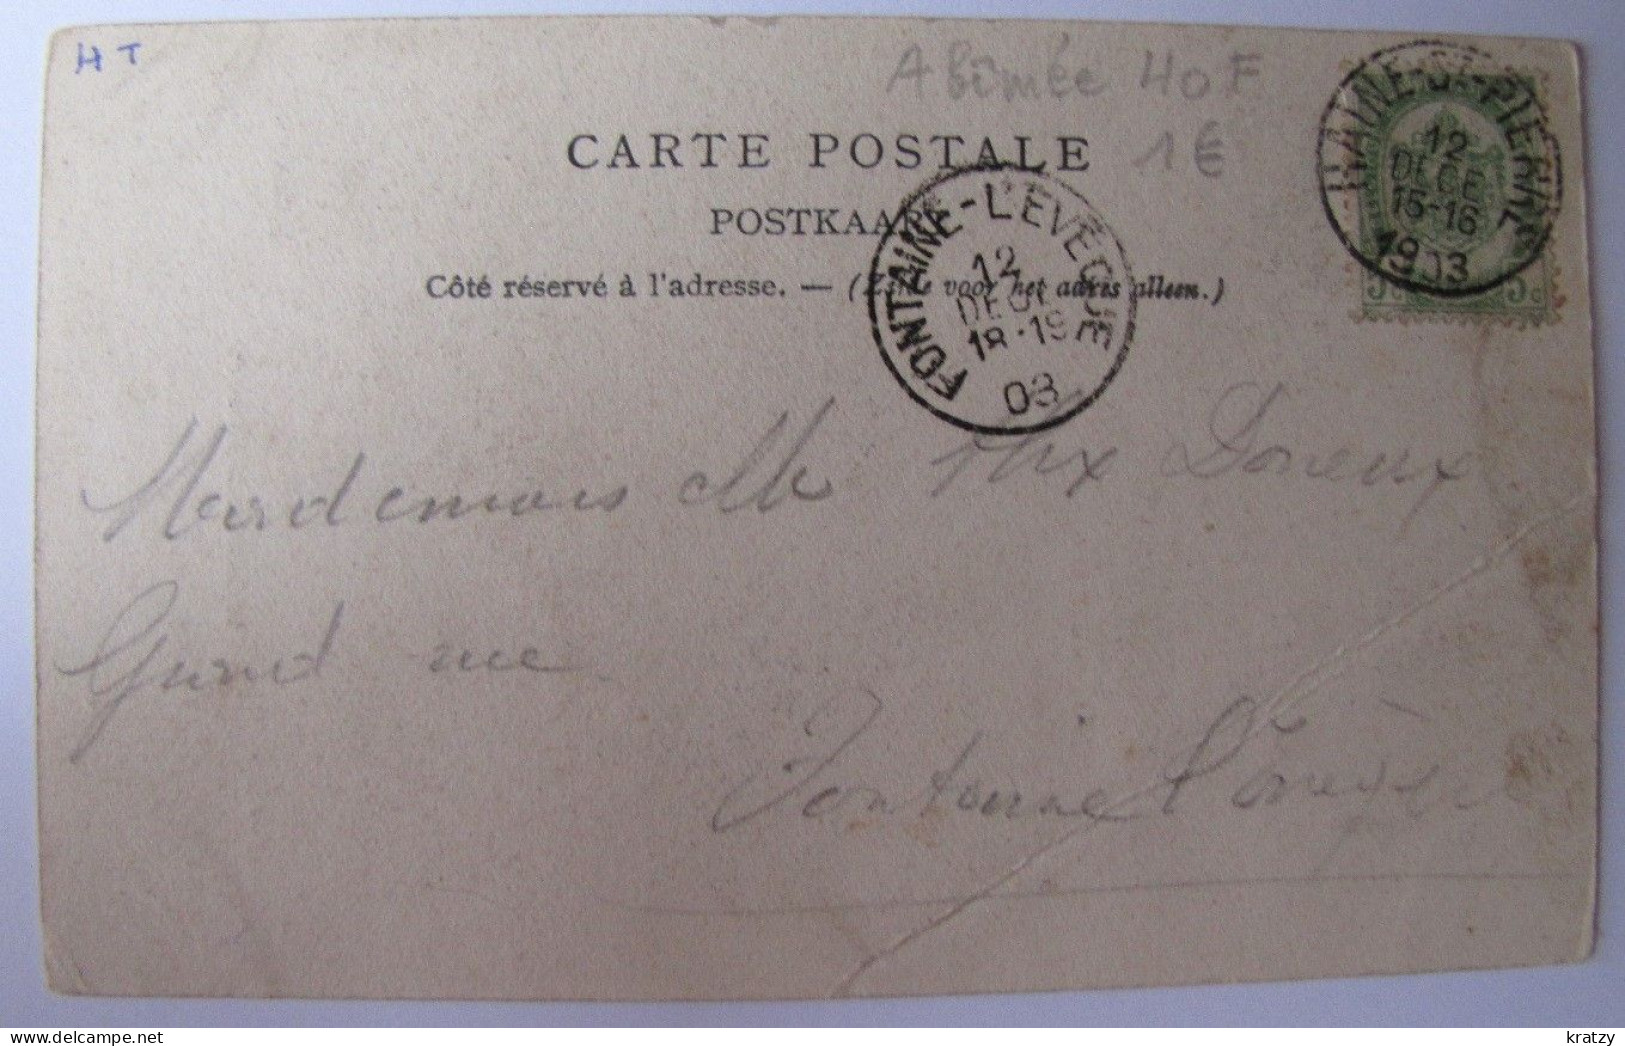 HT
Abîmée 40F
1€
CARTE POSTALE
POSTKAART
Côté réservé à l'adresse. — (Zijde voor het adres alleen.)
FONTAINE-L'EVEQUE
12
DECE
18-19
03
HAINE-ST-PIERRE
12
DECE
15-16
1903
5c 5c
Mademoiselle
Grand rue
Fontaine l'Evêque
kratzy